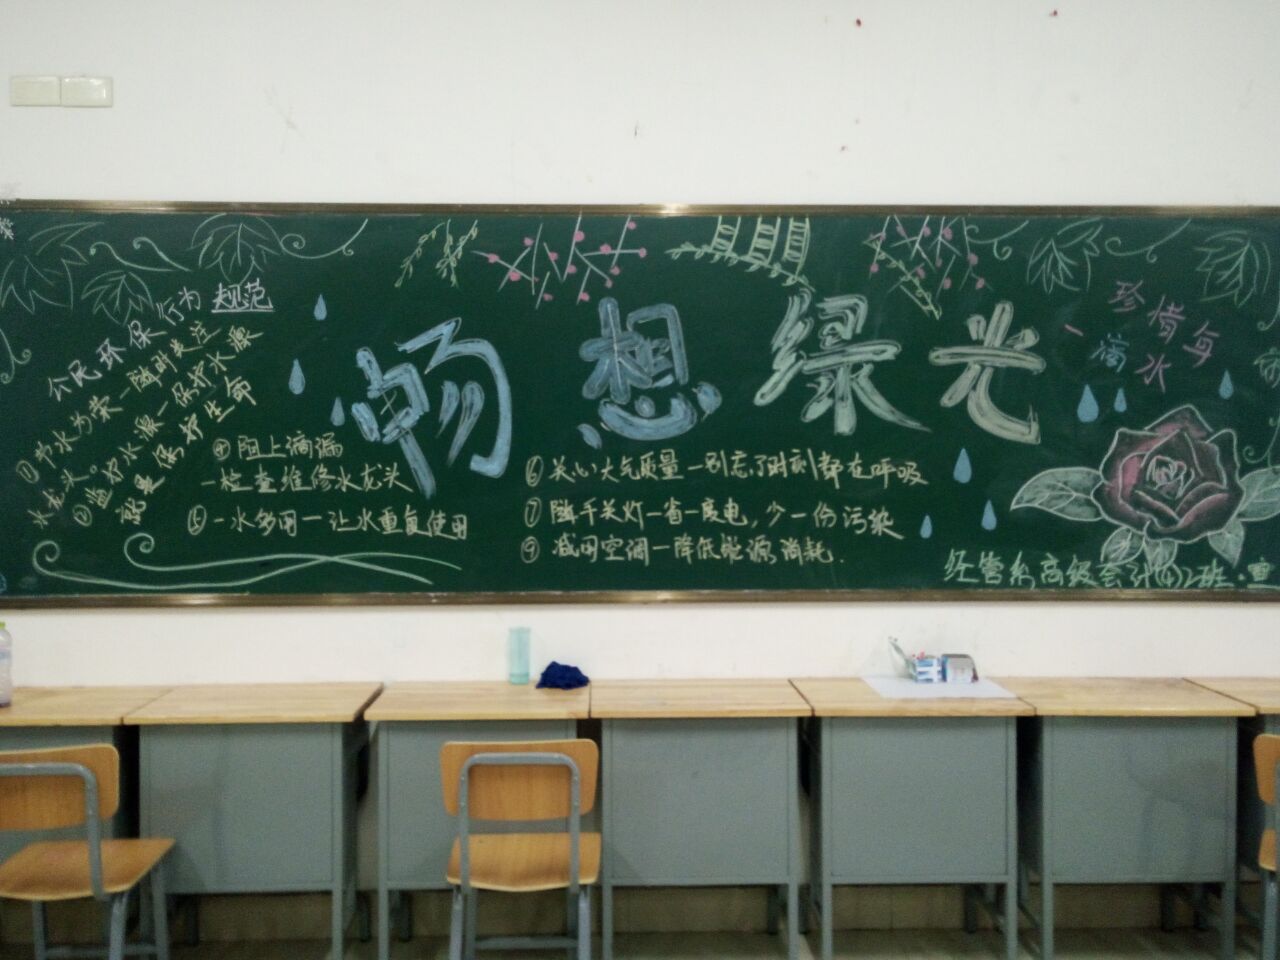 公民环保行为规范
①节水为荣一随时关注
水龙头。
②监护水源一保护水源
就是保护生命
④阻上滴漏
一检查维修水龙头
⑤一水多用一让水重复使用
畅想绿光
⑥关心大气质量一别忘了时刻都在呼吸
⑦随手关灯一省一度电，少一份污染
⑨减用空调一降低能源消耗.
珍惜每
一滴水
经管系高级会计(4)2班.